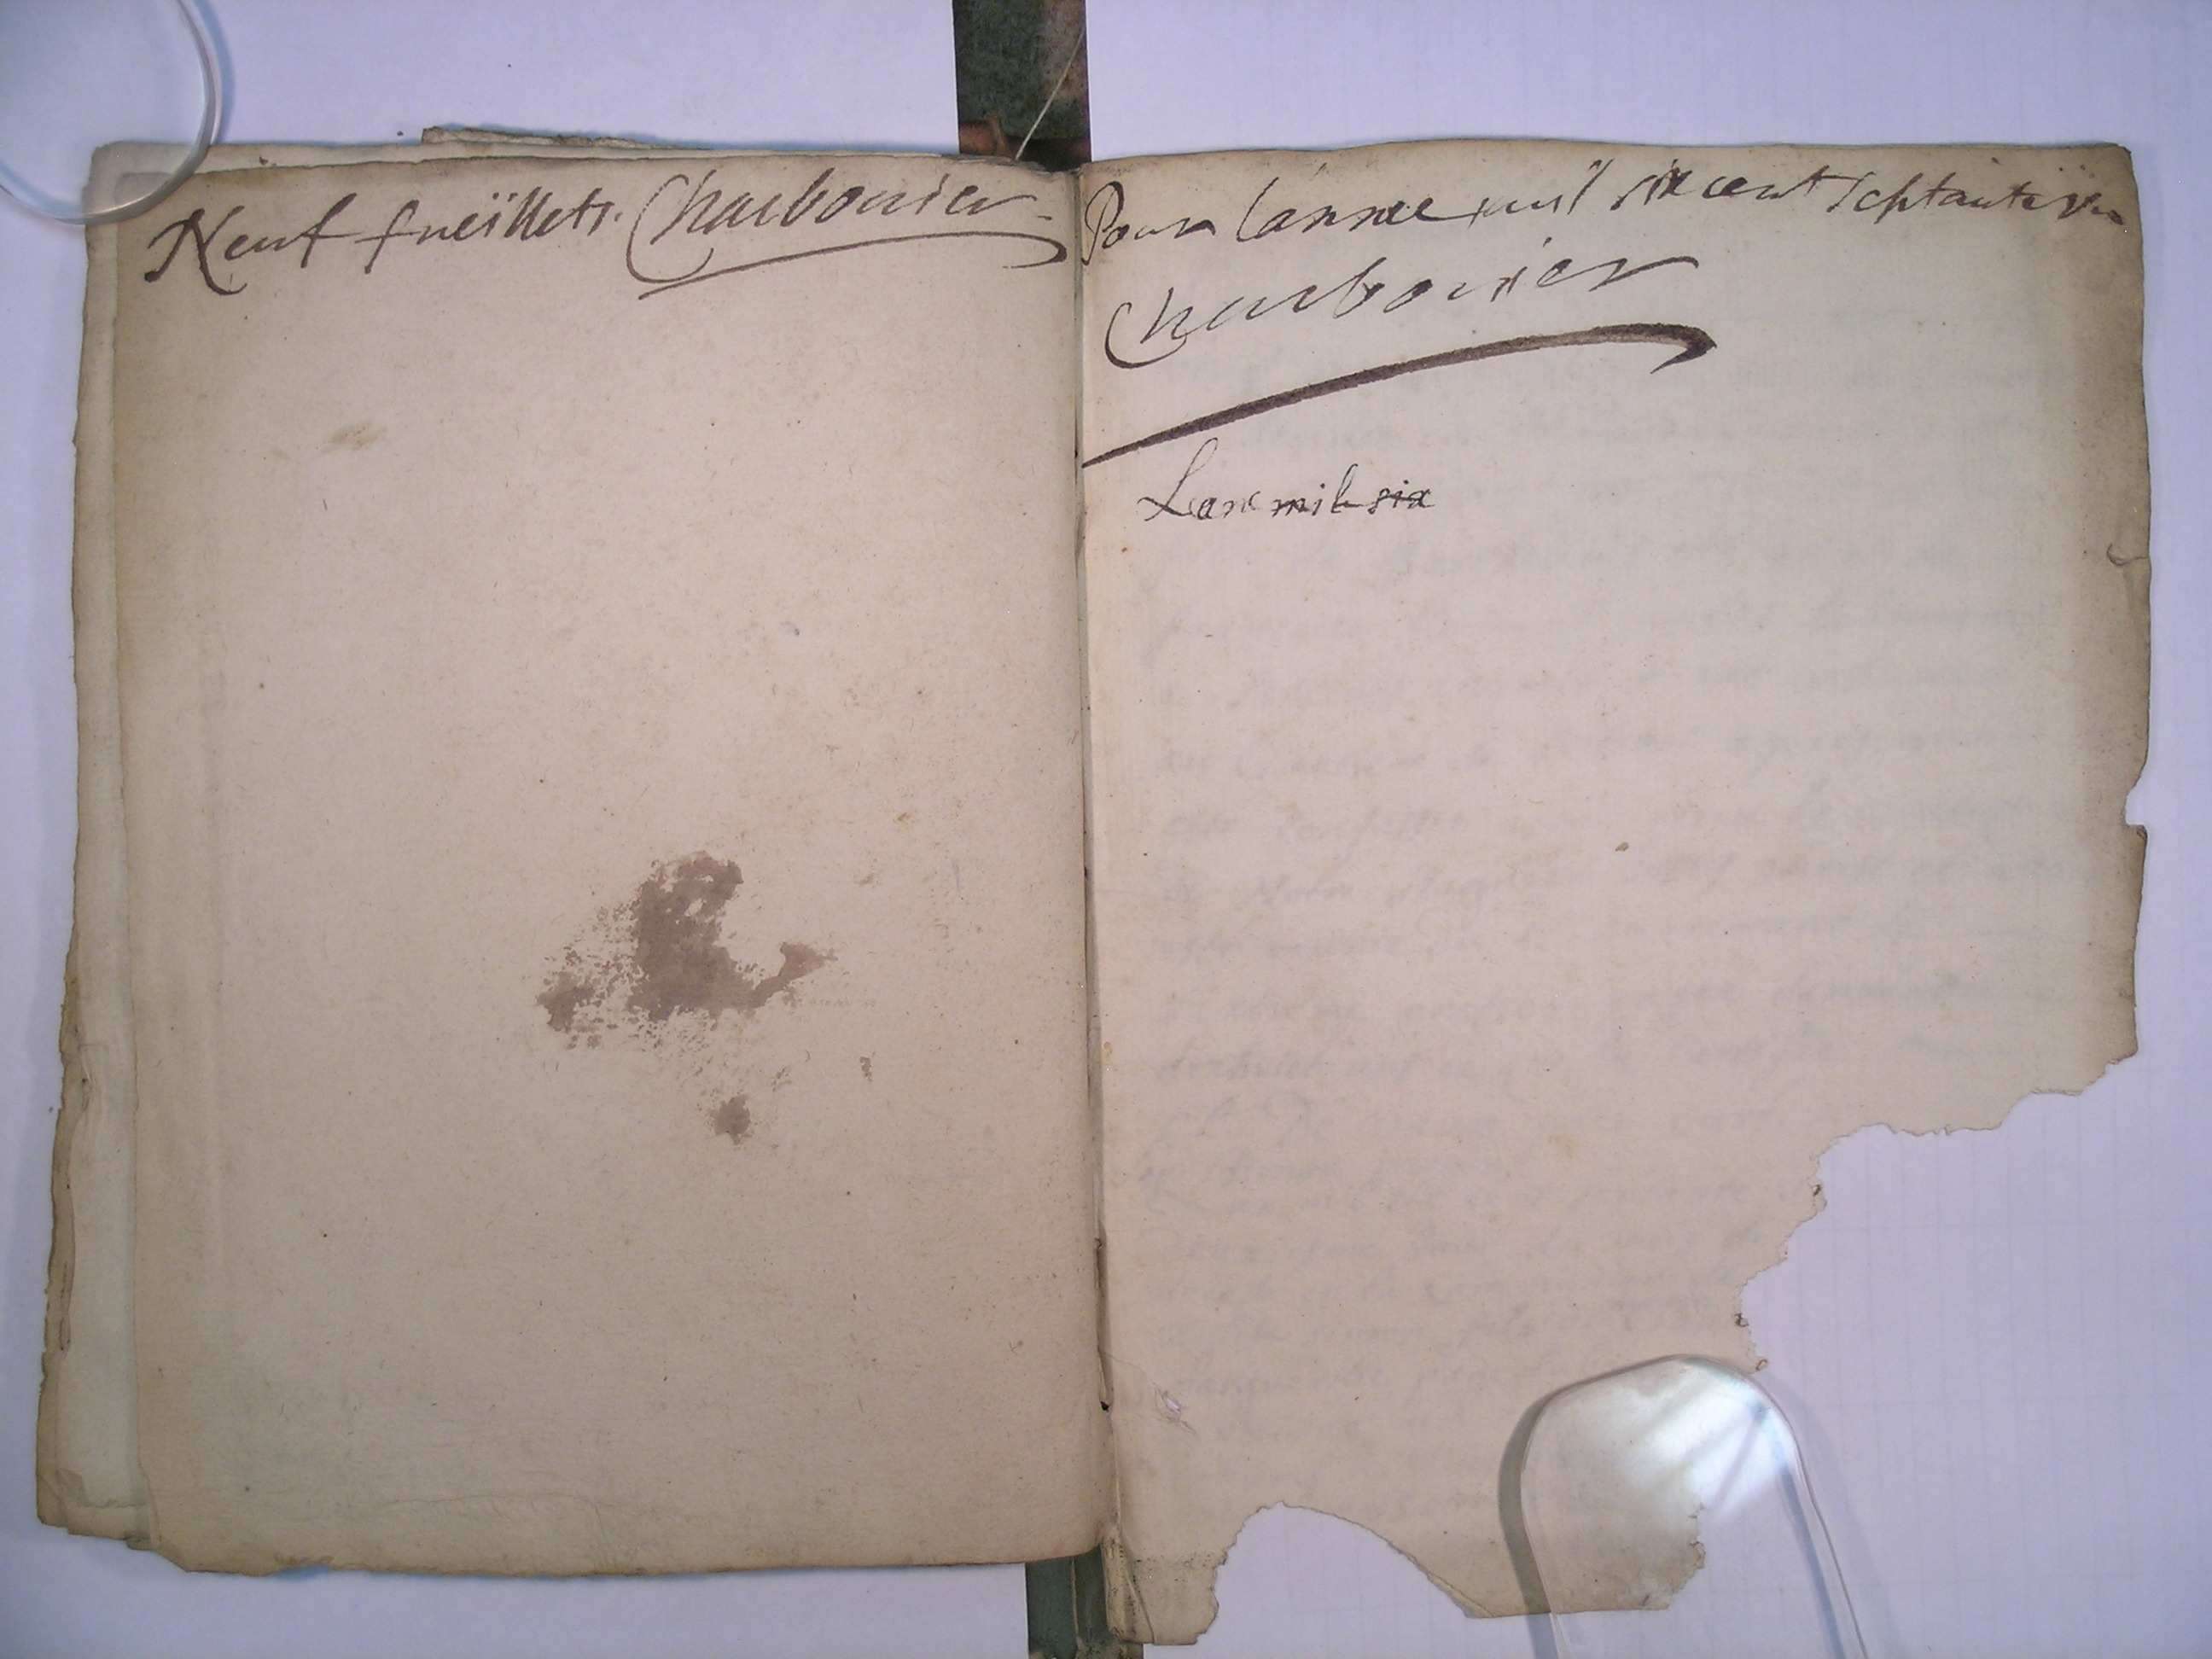 Neuf fueïllets. Charbonier
Pour lannee mil six cent septante un
Charbonier
Lan mil six